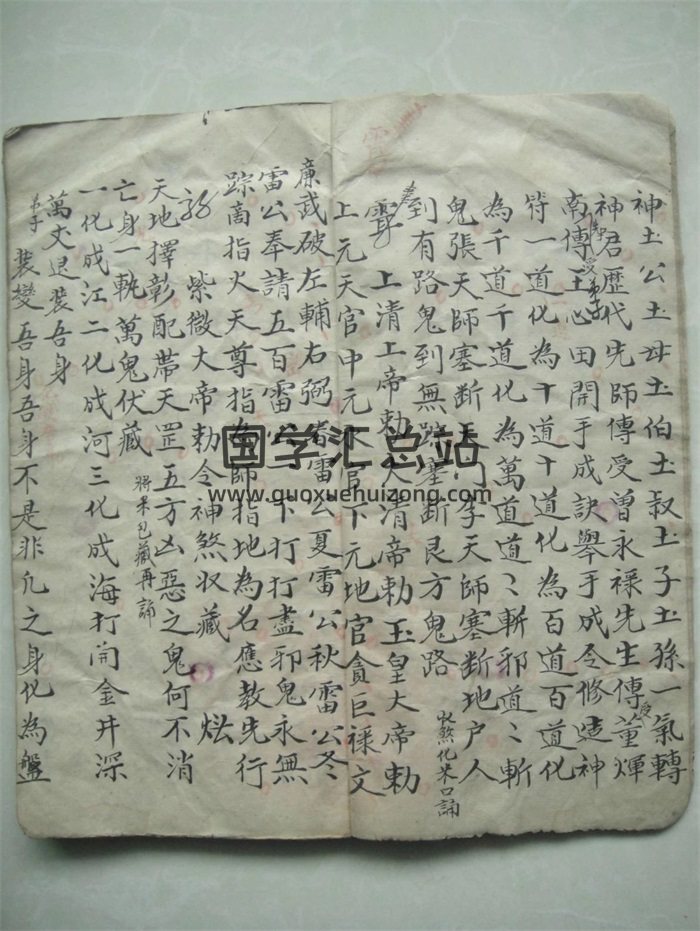 神土公土母土伯土叔土子土孫一氣轉
神君歷代先師傳受曾永祿先生傳董煇
南傳王心田開手成訣舉手成令修造神
符一道化為十道十道化為百道百道化
為千道千道化為萬道道〻斬邪道〻斬
鬼張天師塞断天門李天師塞断地户人
到有路鬼到無踪塞断艮方鬼路
收煞化米口誦
上清上帝勅太清帝勅玉皇大帝勅
上元天官中元水官下元地官貪巨禄文
廉武破左輔右弼春雷公夏雷公秋雷公冬
雷公奉請五百雷公一下打打盡邪鬼永無
踪高指火天尊指為師指地為名應教先行
紫微大帝勅令神煞收藏
天地擇彰配帶天罡五方凶惡之鬼何不消
亡身一軌萬鬼伏藏
將米包藏再誦
一化成江二化成河三化成海打開金井深
萬丈退裝吾身
弟子
裝變吾身吾身不是非凢之身化為盤
国学汇总站
www.quoxuehuizong.com